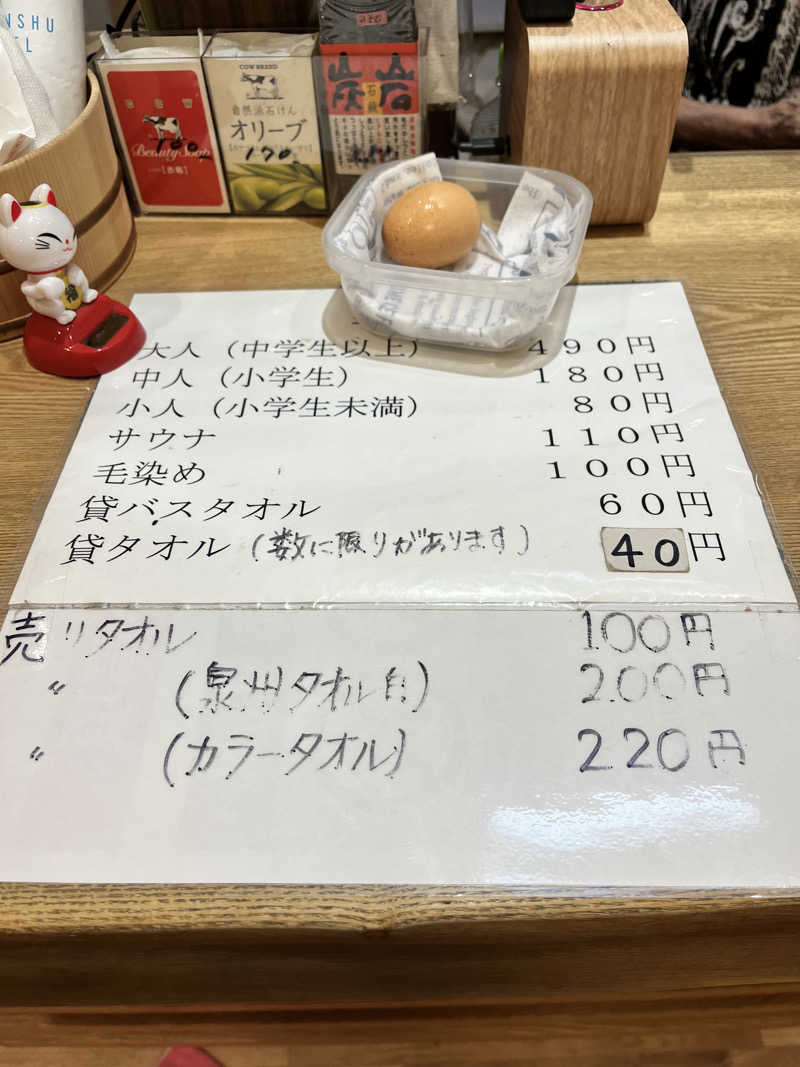 NSHU
EL
250
COW BRAND
自然派石けん
オリーブ
170.
100.
Beauty Soap
【赤箱】
炭 石鹸 岩
大人（中学生以上） 490円
中人（小学生） 180円
小人（小学生未満） 80円
サウナ 110円
毛染め 100円
貸バスタオル 60円
貸タオル（数に限りがあります） 40円
売リタオル 100円
〃 （泉州タオル白） 200円
〃 （カラータオル） 220円